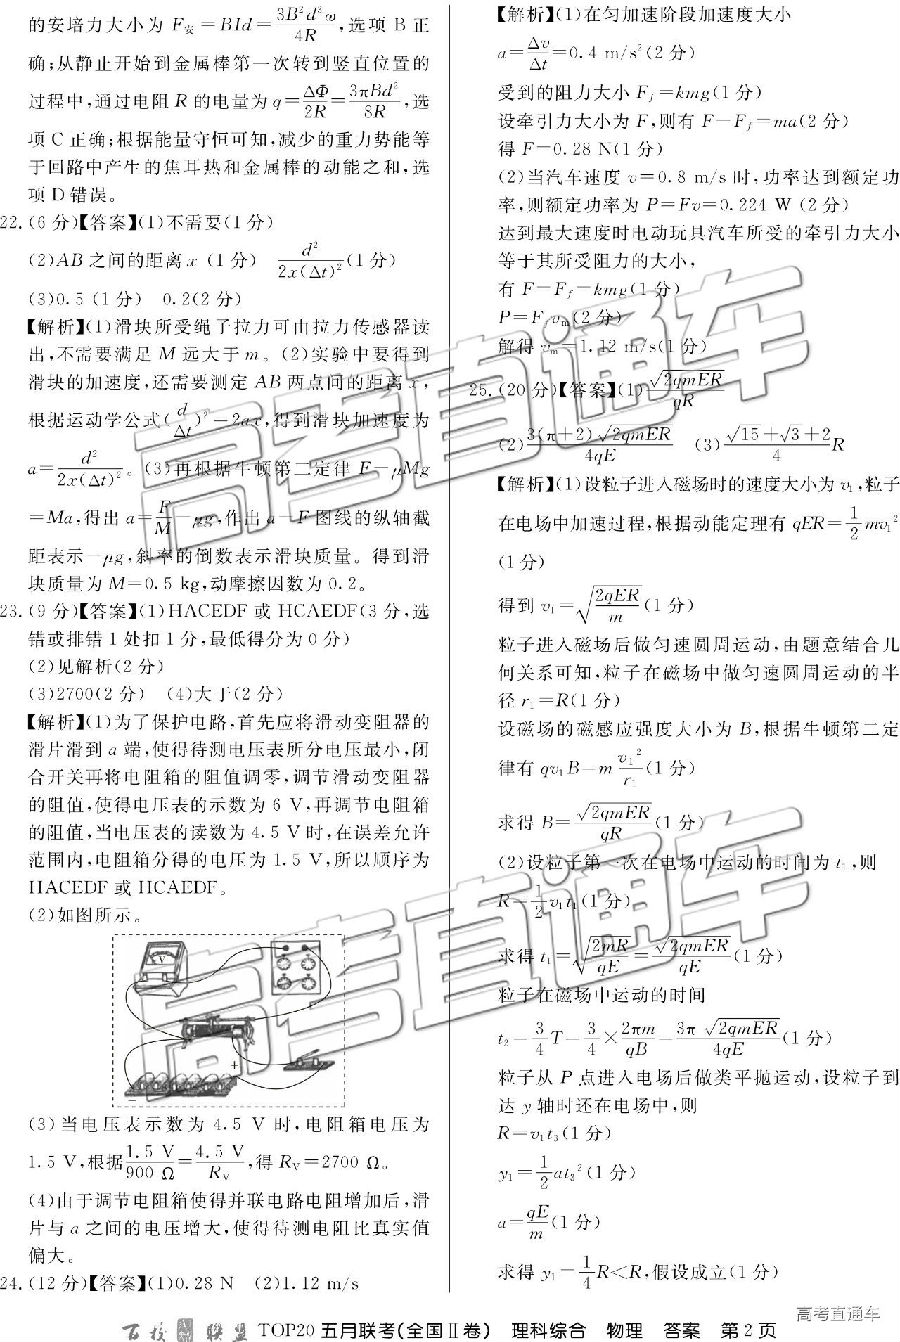 的安培力大小为 F安=BId=3B²d²ω/4R,选项 B 正
确;从静止开始到金属棒第一次转到竖直位置的
过程中,通过电阻 R 的电量为 q=ΔΦ/2R=3πBd²/8R,选
项 C 正确;根据能量守恒可知,减少的重力势能等
于回路中产生的焦耳热和金属棒的动能之和,选
项 D 错误。
22.(6 分)【答案】(1)不需要(1 分)
(2)AB 之间的距离 x (1 分) d²/2x(Δt)²(1 分)
(3)0.5 (1 分) 0.2(2 分)
【解析】(1)滑块所受绳子拉力可由拉力传感器读
出,不需要满足 M 远大于 m。(2)实验中要得到
滑块的加速度,还需要测定 AB 两点间的距离 x,
根据运动学公式(d/Δt)²=2ax,得到滑块加速度为
a=d²/2x(Δt)²。(3)再根据牛顿第二定律 F-μMg
=Ma,得出 a=F/M-μg,作出 a-F 图线的纵轴截
距表示-μg,斜率的倒数表示滑块质量。得到滑
块质量为 M=0.5 kg,动摩擦因数为 0.2。
23.(9 分)【答案】(1)HACEDF 或 HCAEDF(3 分,选
错或排错 1 处扣 1 分,最低得分为 0 分)
(2)见解析(2 分)
(3)2700(2 分) (4)大于(2 分)
【解析】(1)为了保护电路,首先应将滑动变阻器的
滑片滑到 a 端,使得待测电压表所分电压最小,闭
合开关再将电阻箱的阻值调零,调节滑动变阻器
的阻值,使得电压表的示数为 6 V,再调节电阻箱
的阻值,当电压表的读数为 4.5 V 时,在误差允许
范围内,电阻箱分得的电压为 1.5 V,所以顺序为
HACEDF 或 HCAEDF。
(2)如图所示。
V
+
-
(3)当电压表示数为 4.5 V 时,电阻箱电压为
1.5 V,根据1.5 V/900 Ω=4.5 V/RV,得 RV=2700 Ω。
(4)由于调节电阻箱使得并联电路电阻增加后,滑
片与 a 之间的电压增大,使得待测电阻比真实值
偏大。
24.(12 分)【答案】(1)0.28 N (2)1.12 m/s
【解析】(1)在匀加速阶段加速度大小
a=Δv/Δt=0.4 m/s²(2 分)
受到的阻力大小 Ff=kmg(1 分)
设牵引力大小为 F,则有 F-Ff=ma(2 分)
得 F=0.28 N(1 分)
(2)当汽车速度 v=0.8 m/s 时,功率达到额定功
率,则额定功率为 P=Fv=0.224 W (2 分)
达到最大速度时电动玩具汽车所受的牵引力大小
等于其所受阻力的大小,
有 F=Ff=kmg(1 分)
P=Ffvm(2 分)
解得 vm=1.12 m/s(1 分)
25.(20 分)【答案】(1)√2qmER/qR
(2)3(π+2)√2qmER/4qE (3)√15+√3+2/4 R
【解析】(1)设粒子进入磁场时的速度大小为 v₁,粒子
在电场中加速过程,根据动能定理有 qER=1/2 mv₁²
(1 分)
得到 v₁=√(2qER/m)(1 分)
粒子进入磁场后做匀速圆周运动,由题意结合几
何关系可知,粒子在磁场中做匀速圆周运动的半
径 r₁=R(1 分)
设磁场的磁感应强度大小为 B,根据牛顿第二定
律有 qv₁B=m v₁²/r₁(1 分)
求得 B=√2qmER/qR(1 分)
(2)设粒子第一次在电场中运动的时间为 t₁,则
R=1/2 v₁t₁(1 分)
求得 t₁=√(2mR/qE)=√2qmER/qE(1 分)
粒子在磁场中运动的时间
t₂=3/4 T=3/4×2πm/qB=3π√2qmER/4qE(1 分)
粒子从 P 点进入电场后做类平抛运动,设粒子到
达 y 轴时还在电场中,则
R=v₁t₃(1 分)
y₁=1/2 at₃²(1 分)
a=qE/m(1 分)
求得 y₁=1/4 R<R,假设成立(1 分)
高考直通车
高考直通车
高考直通车
百校联盟 TOP20 五月联考(全国Ⅱ卷) 理科综合 物理 答案 第 2 页